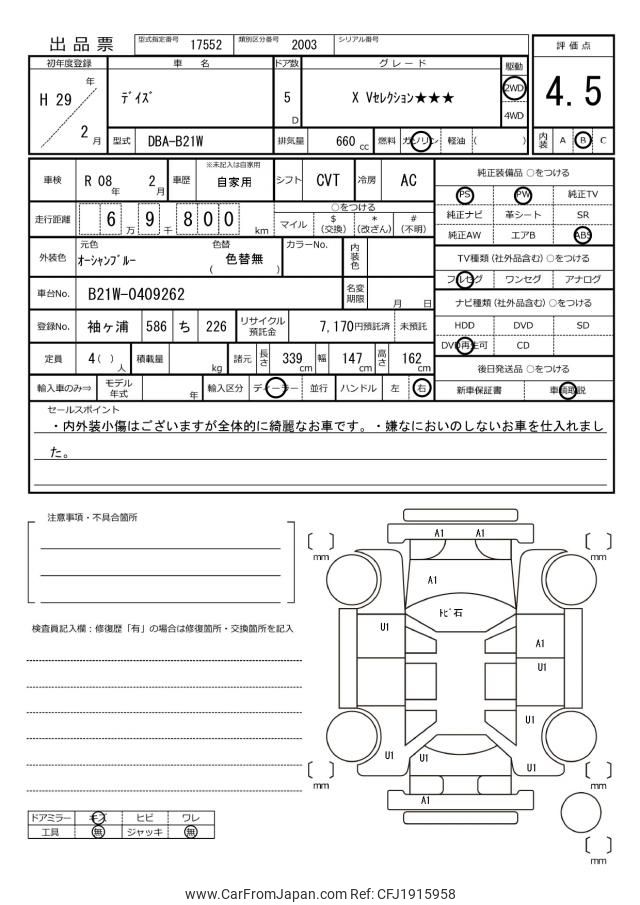 出品票
型式指定番号 17552 類別区分番号 2003 シリアル番号
評価点
4.5
初年度登録 車名 ドア数 グレード 駆動
H 29 年
2 月
ﾃﾞｲｽﾞ
5
D
X Vｾﾚｸｼｮﾝ★★★
2WD
4WD
型式 DBA-B21W 排気量 660 cc 燃料 ガソリン 軽油 ( )
内装 A B C
車検 R 08 年 2 月 車歴
※未記入は自家用
自家用
シフト CVT 冷房 AC
純正装備品 ○をつける
PS PW 純正TV
純正ナビ 革シート SR
純正AW エアB ABS
走行距離 6 9 8 0 0
万 千 km
○をつける
マイル $(交換) *(改ざん) #(不明)
外装色 元色 ｵｰｼｬﾝﾌﾞﾙｰ 色替 ( 色替無 ) カラーNo. 内装色
TV種類 (社外品含む) ○をつける
フルセグ ワンセグ アナログ
車台No. B21W-0409262 名変期限 月 日
ナビ種類 (社外品含む) ○をつける
HDD DVD SD
DVD再生可 CD
登録No. 袖ヶ浦 586 ち 226 リサイクル預託金 7,170円預託済 未預託
定員 4( )人 積載量 kg 諸元 長さ 339cm 幅 147cm 高さ 162cm
後日発送品 ○をつける
新車保証書 車輌取説
輸入車のみ⇒ モデル年式 年 輸入区分 ディーラー 並行 ハンドル 左 右
セールスポイント
・内外装小傷はございますが全体的に綺麗なお車です。・嫌なにおいのしないお車を仕入れまし
た。
注意事項・不具合箇所
検査員記入欄：修復歴「有」の場合は修復箇所・交換箇所を記入
A1 A1
mm mm
A1
ﾄﾋﾞ石
U1
A1
U1
U1
U1 U1 U1
mm mm
A1
mm
ドアミラー キズ ヒビ ワレ
工具 無 ジャッキ 無
www.CarFromJapan.com Ref: CFJ1915958